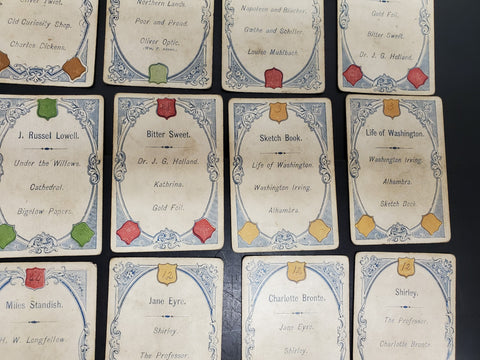 Oliver Twist.
Old Curiosity Shop.
Charles Dickens.
Northern Lands.
Poor and Proud.
Oliver Optic.
Napoleon and Blucher.
Gœthe and Schiller.
Louisa Muhlbach.
Gold Foil.
Bitter Sweet.
Dr. J. G. Holland.
J. Russel Lowell.
Under the Willows.
Cathedral.
Bigelow Papers.
Bitter Sweet.
Dr. J. G. Holland.
Kathrina.
Gold Foil.
Sketch Book.
Life of Washington.
Washington Irving.
Alhambra.
Life of Washington.
Washington Irving.
Alhambra.
Sketch Book.
Miles Standish.
H. W. Longfellow.
12
Jane Eyre.
Shirley.
The Professor.
12
Charlotte Bronte.
Jane Eyre.
Shirley.
12
Shirley.
The Professor.
Charlotte Bronte